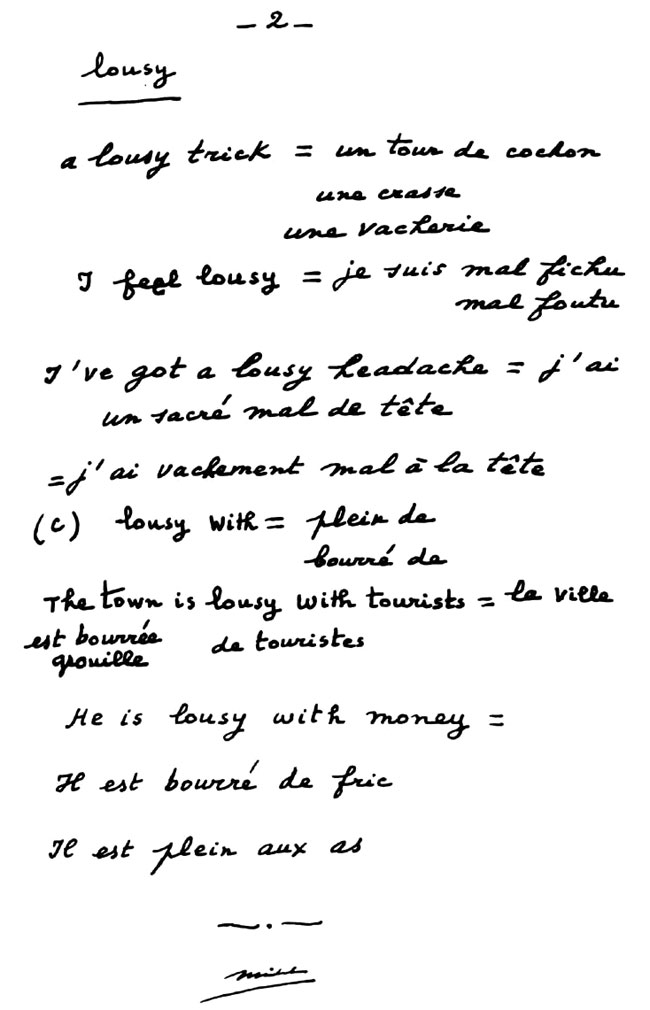 - 2 -
lousy
a lousy trick = un tour de cochon
une crasse
une vacherie
I feel lousy = je suis mal fichu
mal foutu
I've got a lousy headache = j'ai
un sacré mal de tête
= j'ai vachement mal à la tête
(c) lousy with = plein de
bourré de
The town is lousy with tourists = la ville
est bourrée de touristes
grouille
He is lousy with money =
Il est bourré de fric
Il est plein aux as